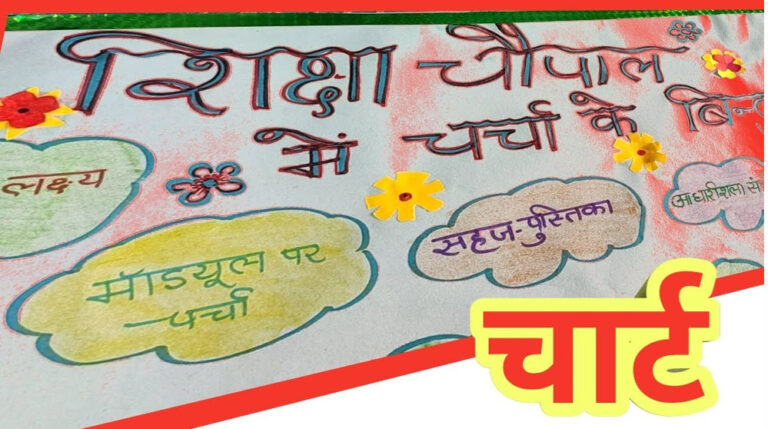 शिक्षा चौपाल
में चर्चा के
लक्ष्य
मॉडयूल पर
-चर्चा
सहज-पुस्तिका
चार्ट